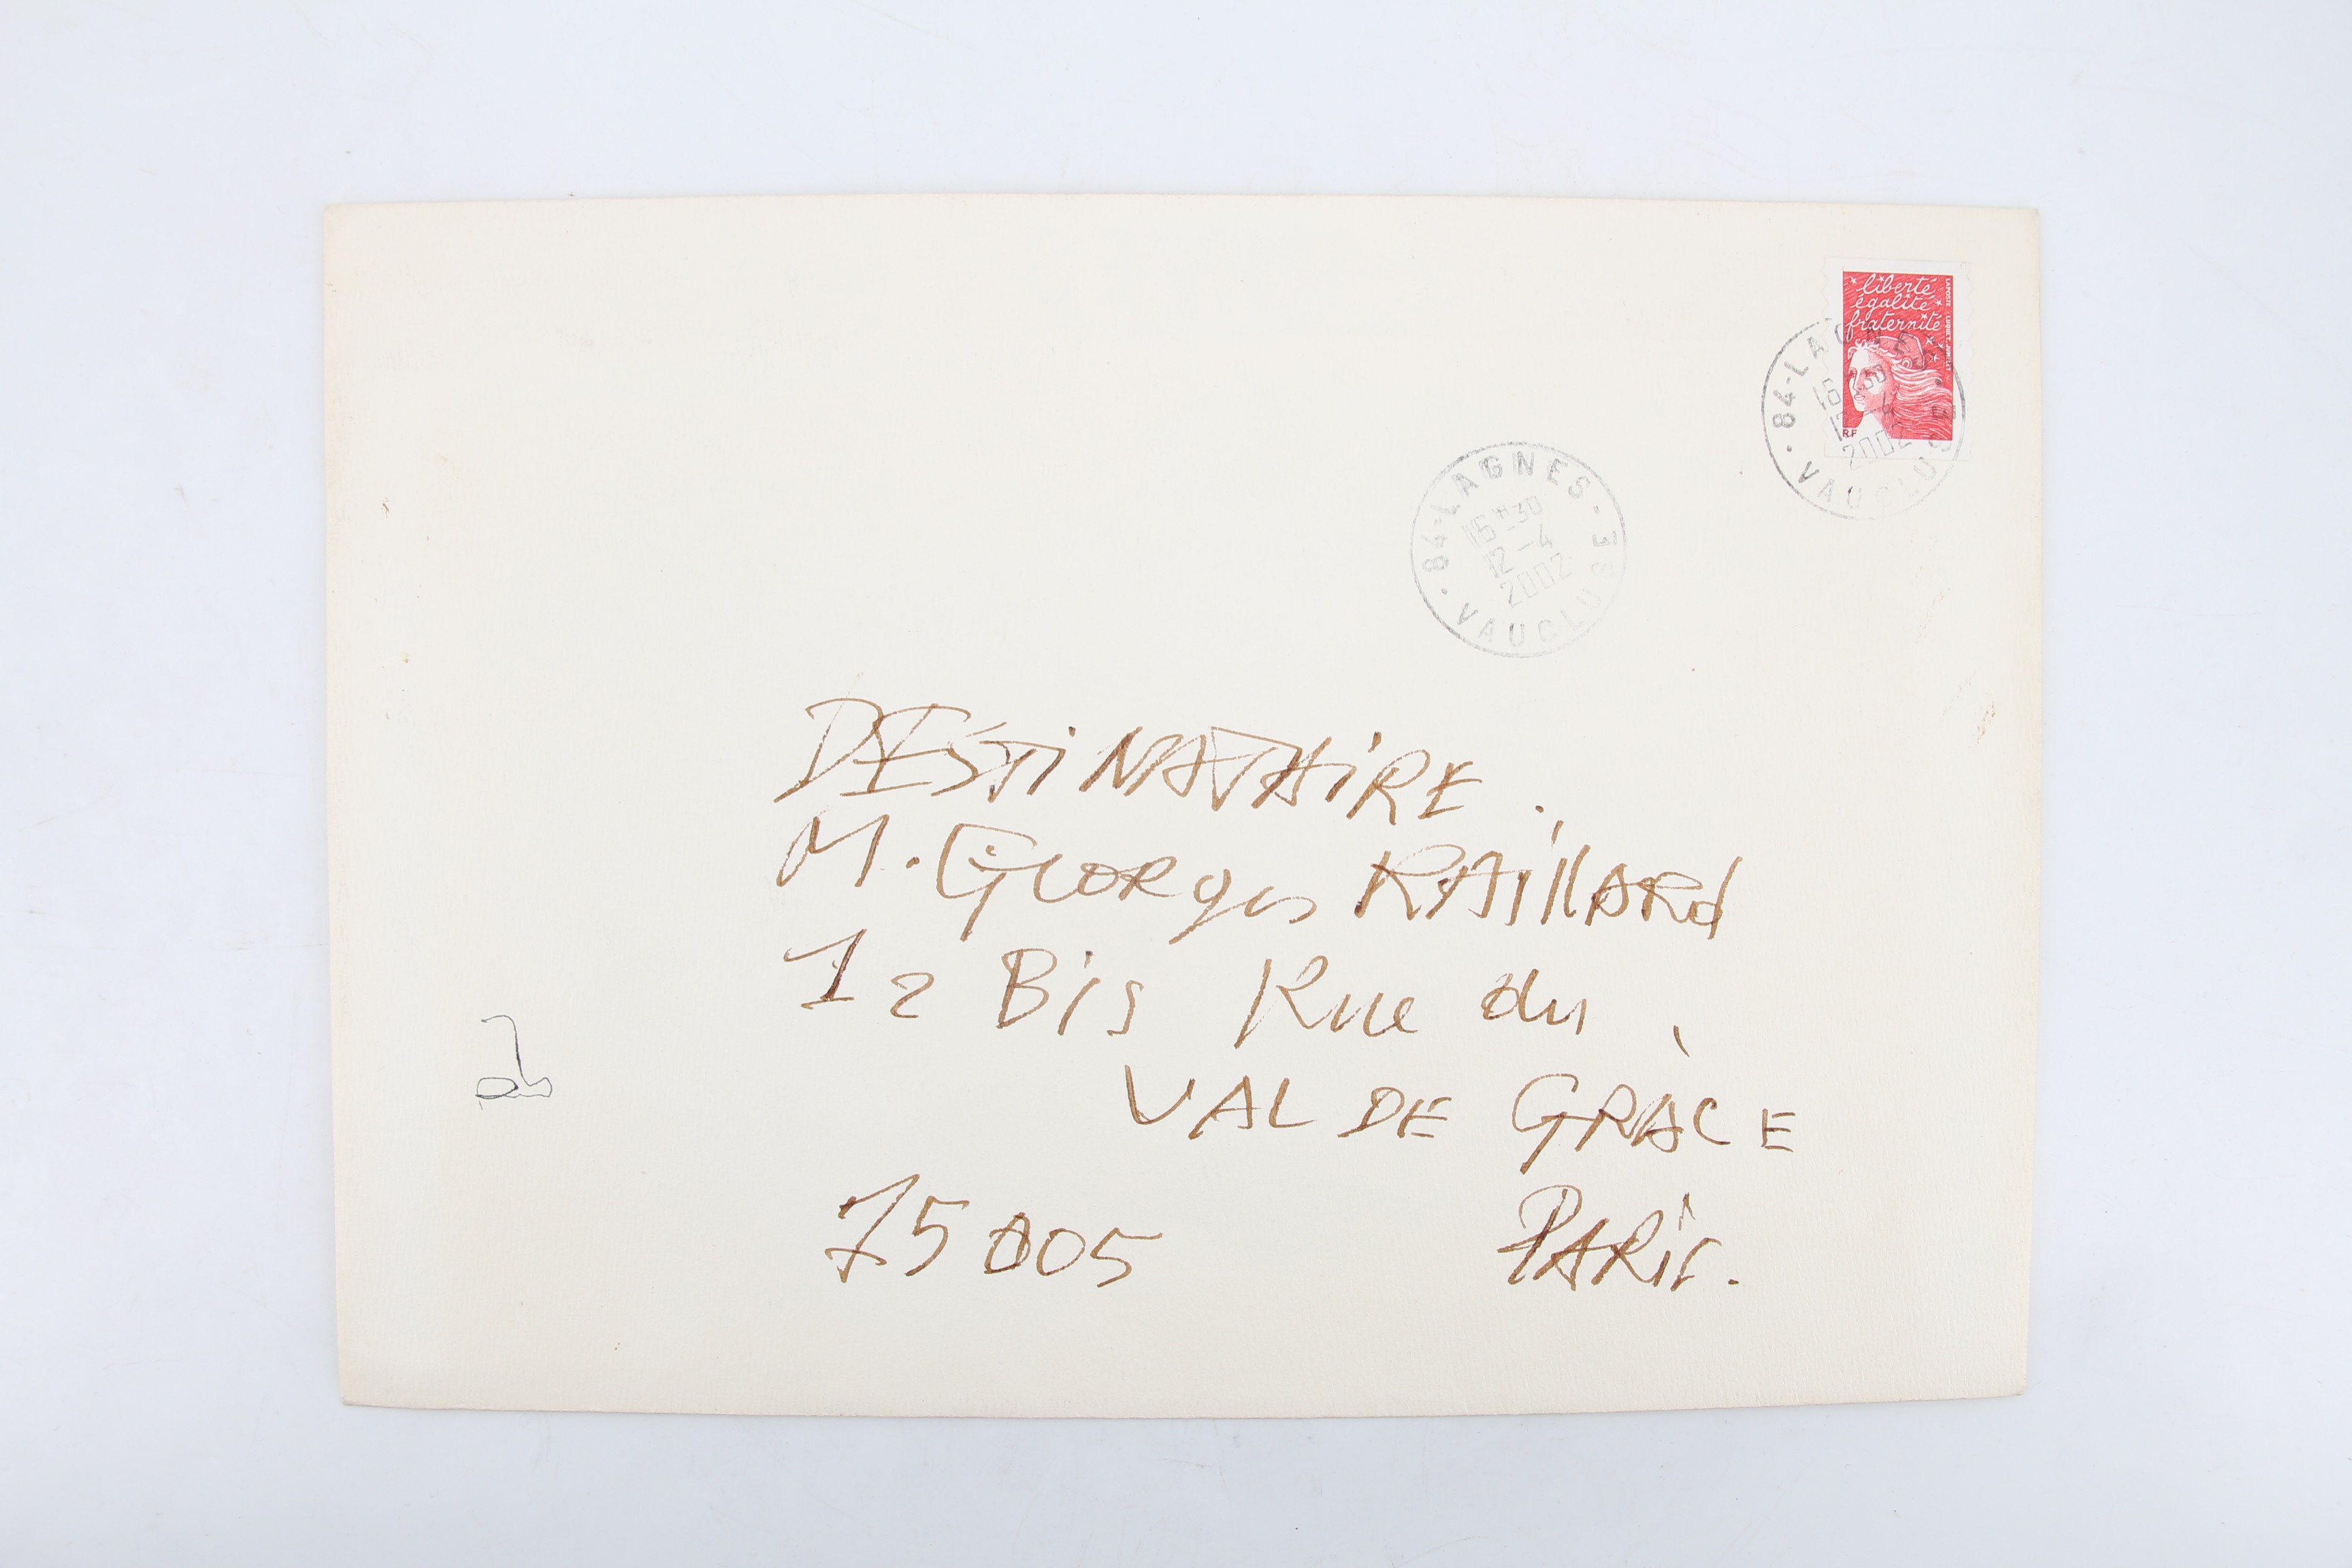 liberté
égalité
fraternité
LA POSTE LUQUET JUMELET
RF
84-LAGNES
16 H30
12-4
2002
VAUCLUSE
84-LAGNES
16H30
12-4
2002
VAUCLUSE
DESTINATAIRE.
M. Georges RAillARd
12 Bis Rue du
VAL DE GRÀCE
75005 PARis.